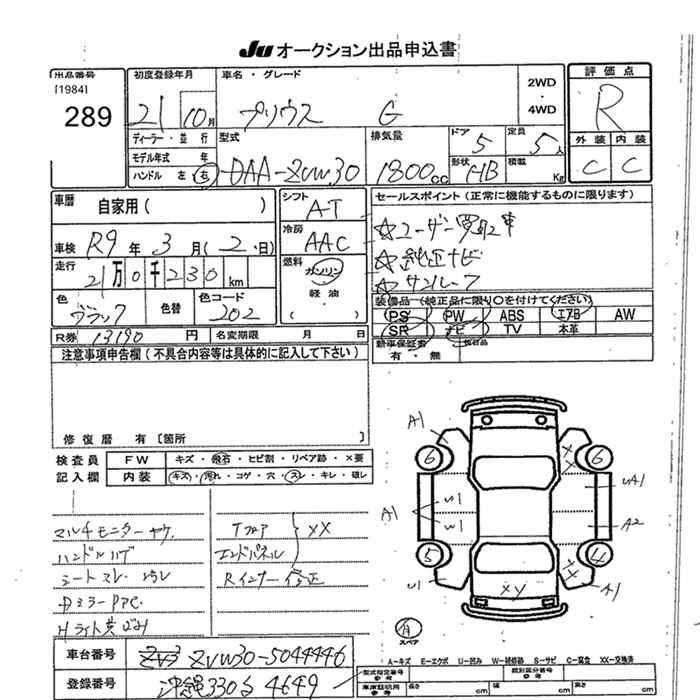 JU オークション出品申込書
出品番号
[1984]
289
初度登録年月
21 10月
車名・グレード
プリウス G
2WD
・
4WD
評価点
R
外装 内装
C C
ディーラー・並行
モデル年式 年
ハンドル 左 右
型式
DAA-ZVW30
排気量
1800cc
ドア 5
形状 HB
定員 5人
積載 Kg
車歴
自家用 ( )
車検 R9年 3月 (2・日)
走行
21万0千230km
色
ブラック
色替
色コード
202
シフト
AT
冷房
AAC
燃料
ガソリン
軽油
( )
セールスポイント (正常に機能するものに限ります)
☆ユーザー買取車
☆純正ナビ
☆サンルーフ
装備品 (純正品に限り○を付けてください)
PS PW ABS エアB AW
SR ナビ TV 本革
R券 13190円 名変期限 月 日
新車保証書
有・無
注意事項申告欄 (不具合内容等は具体的に記入して下さい)
修復歴 有 [箇所 ]
検査員
記入欄
FW キズ・飛石・ヒビ割・リペア跡・×要
内装 キズ・汚れ・コゲ・穴・スレ・キレ・破レ
マルチモニターヤケ
シートスレ
エンドパネル
XX
Rインナー修正
A1
6
6
XX
A1
U1
W1
UA1
A2
5
4
U1
XY
XX
A1
有
スペア
A-キズ E-エクボ U-凹み W-補修跡 S-サビ C-腐食 XX-交換済
車台番号 ZVW30-5044446
登録番号 沖縄330さ4649
型式指定番号
参考
類別区分番号
参考
長さ cm 幅 cm 高さ cm